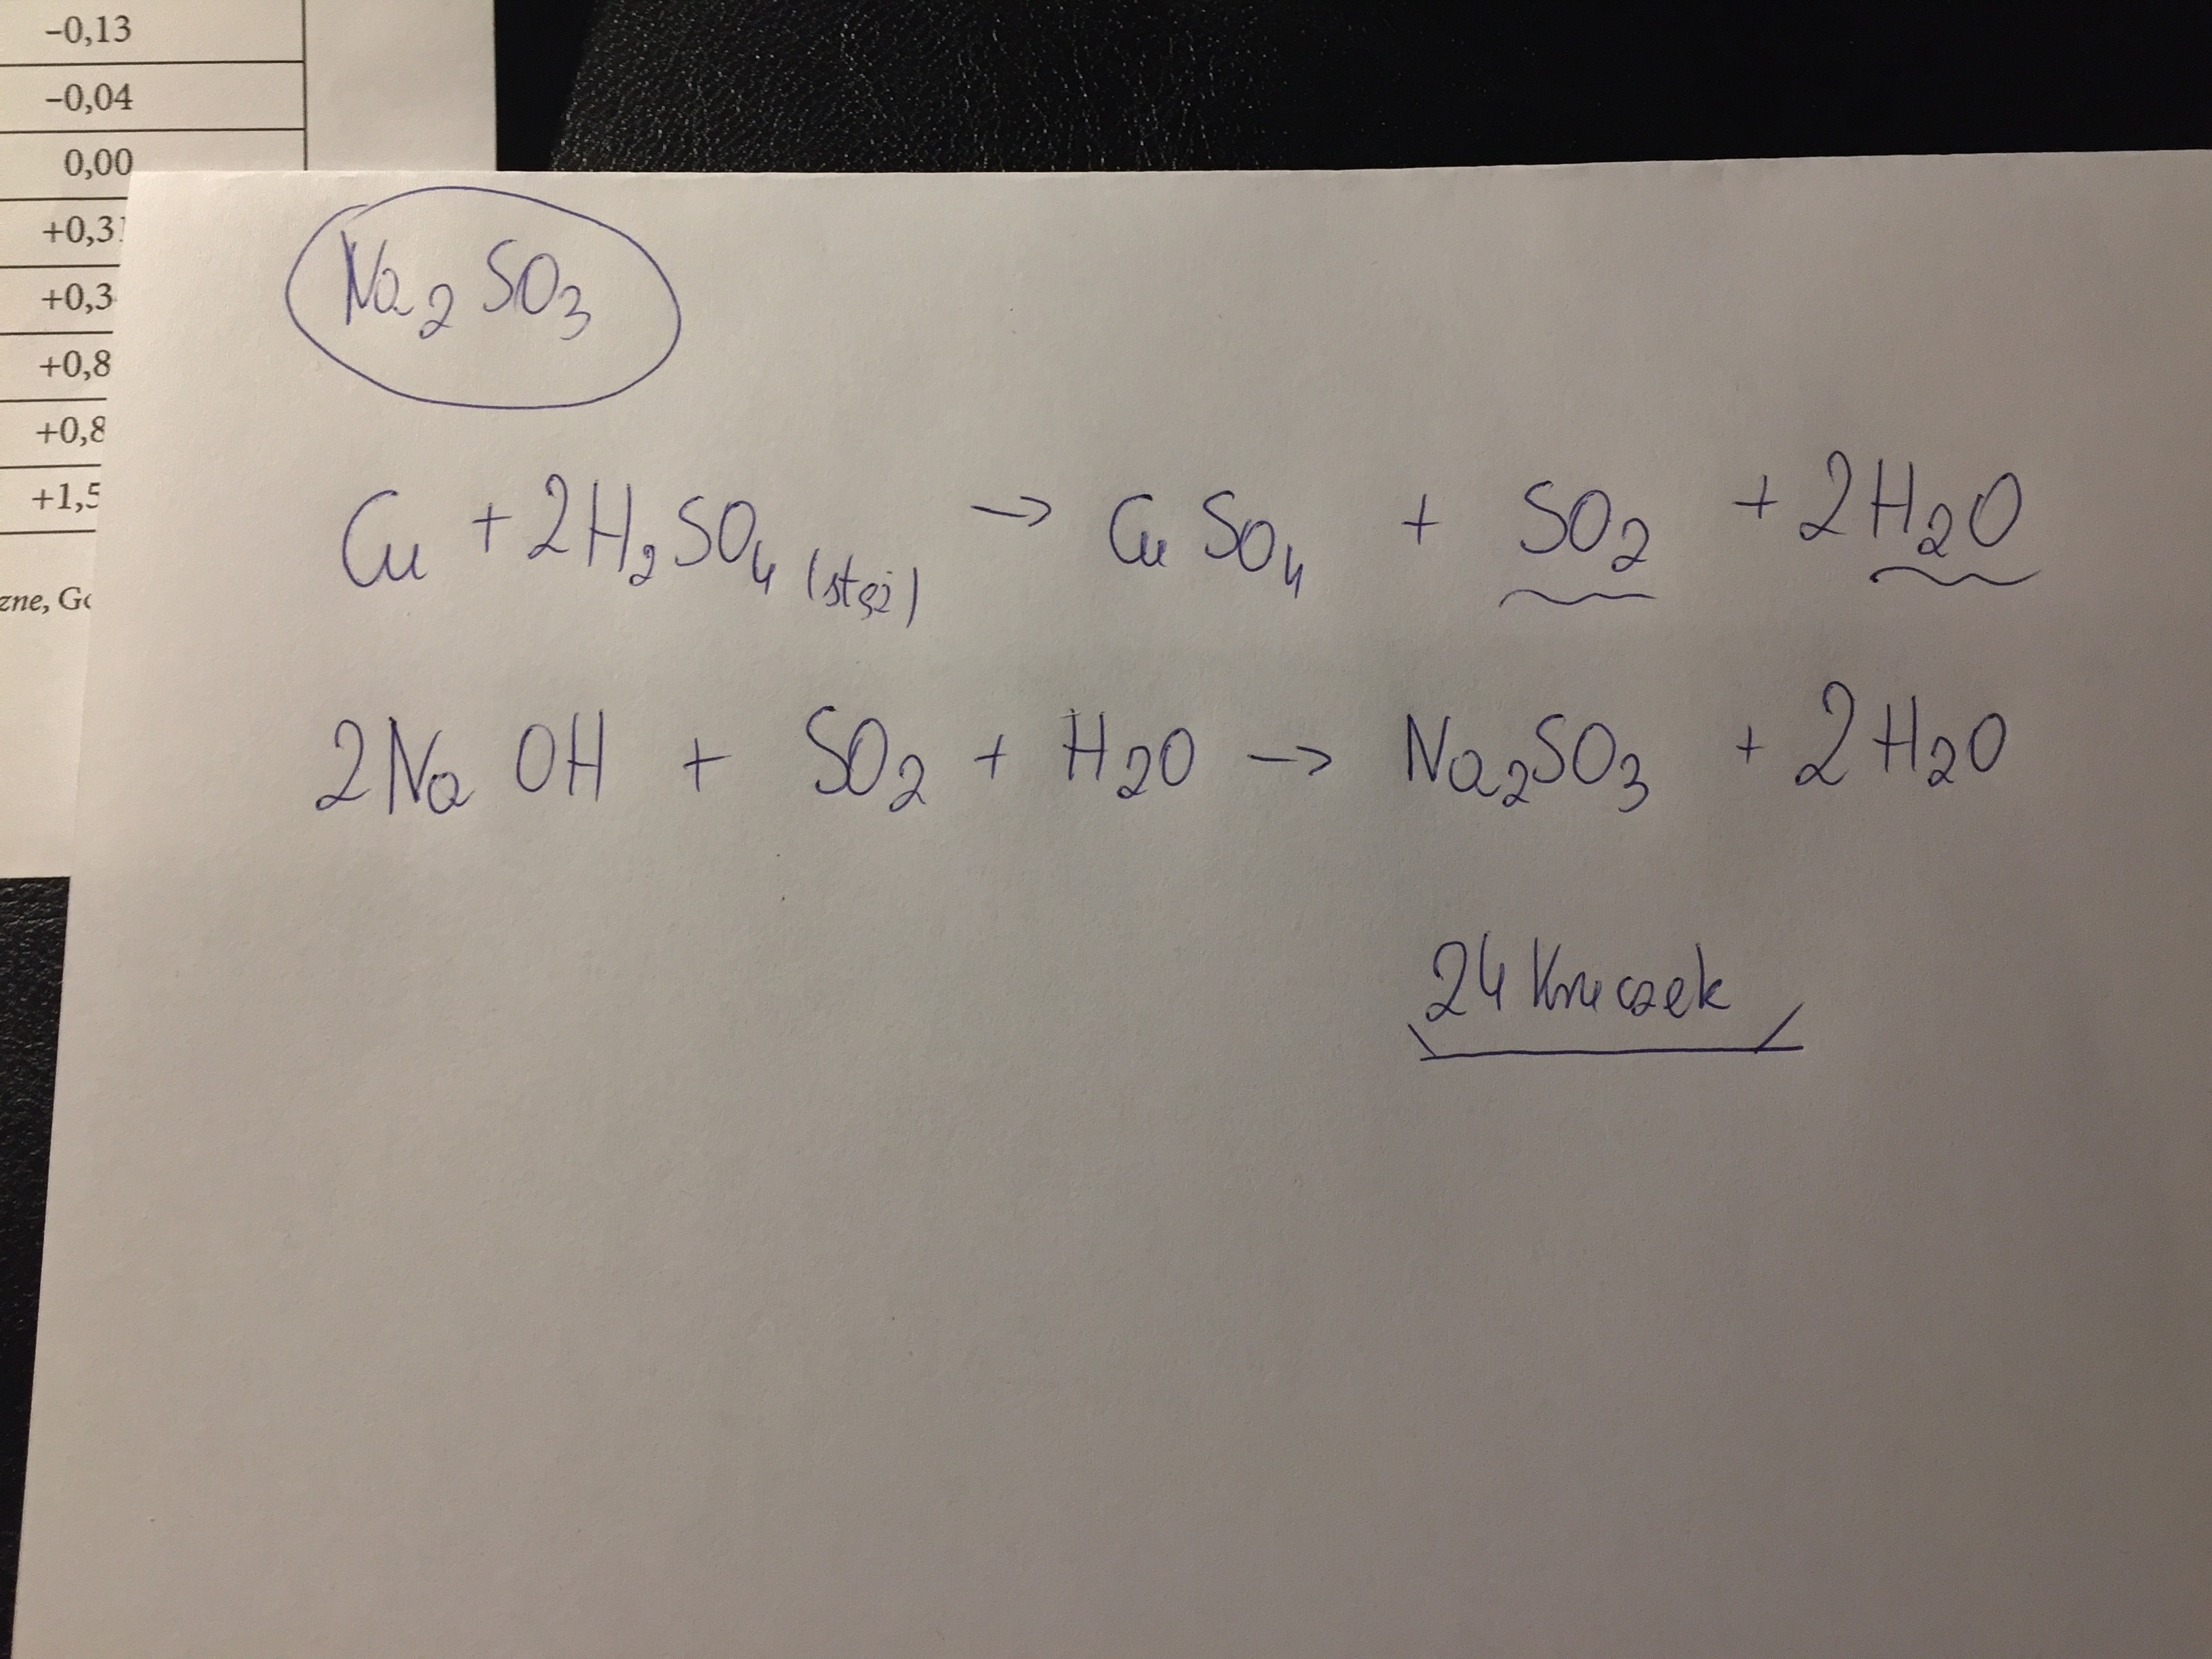 -0,13
-0,04
0,00
+0,31
+0,3
+0,8
+0,8
+1,5
zne, Go
Na₂SO₃
Cu + 2H₂SO₄ (stęż) → CuSO₄ + SO₂ + 2H₂O
2NaOH + SO₂ + H₂O → Na₂SO₃ + 2H₂O
24